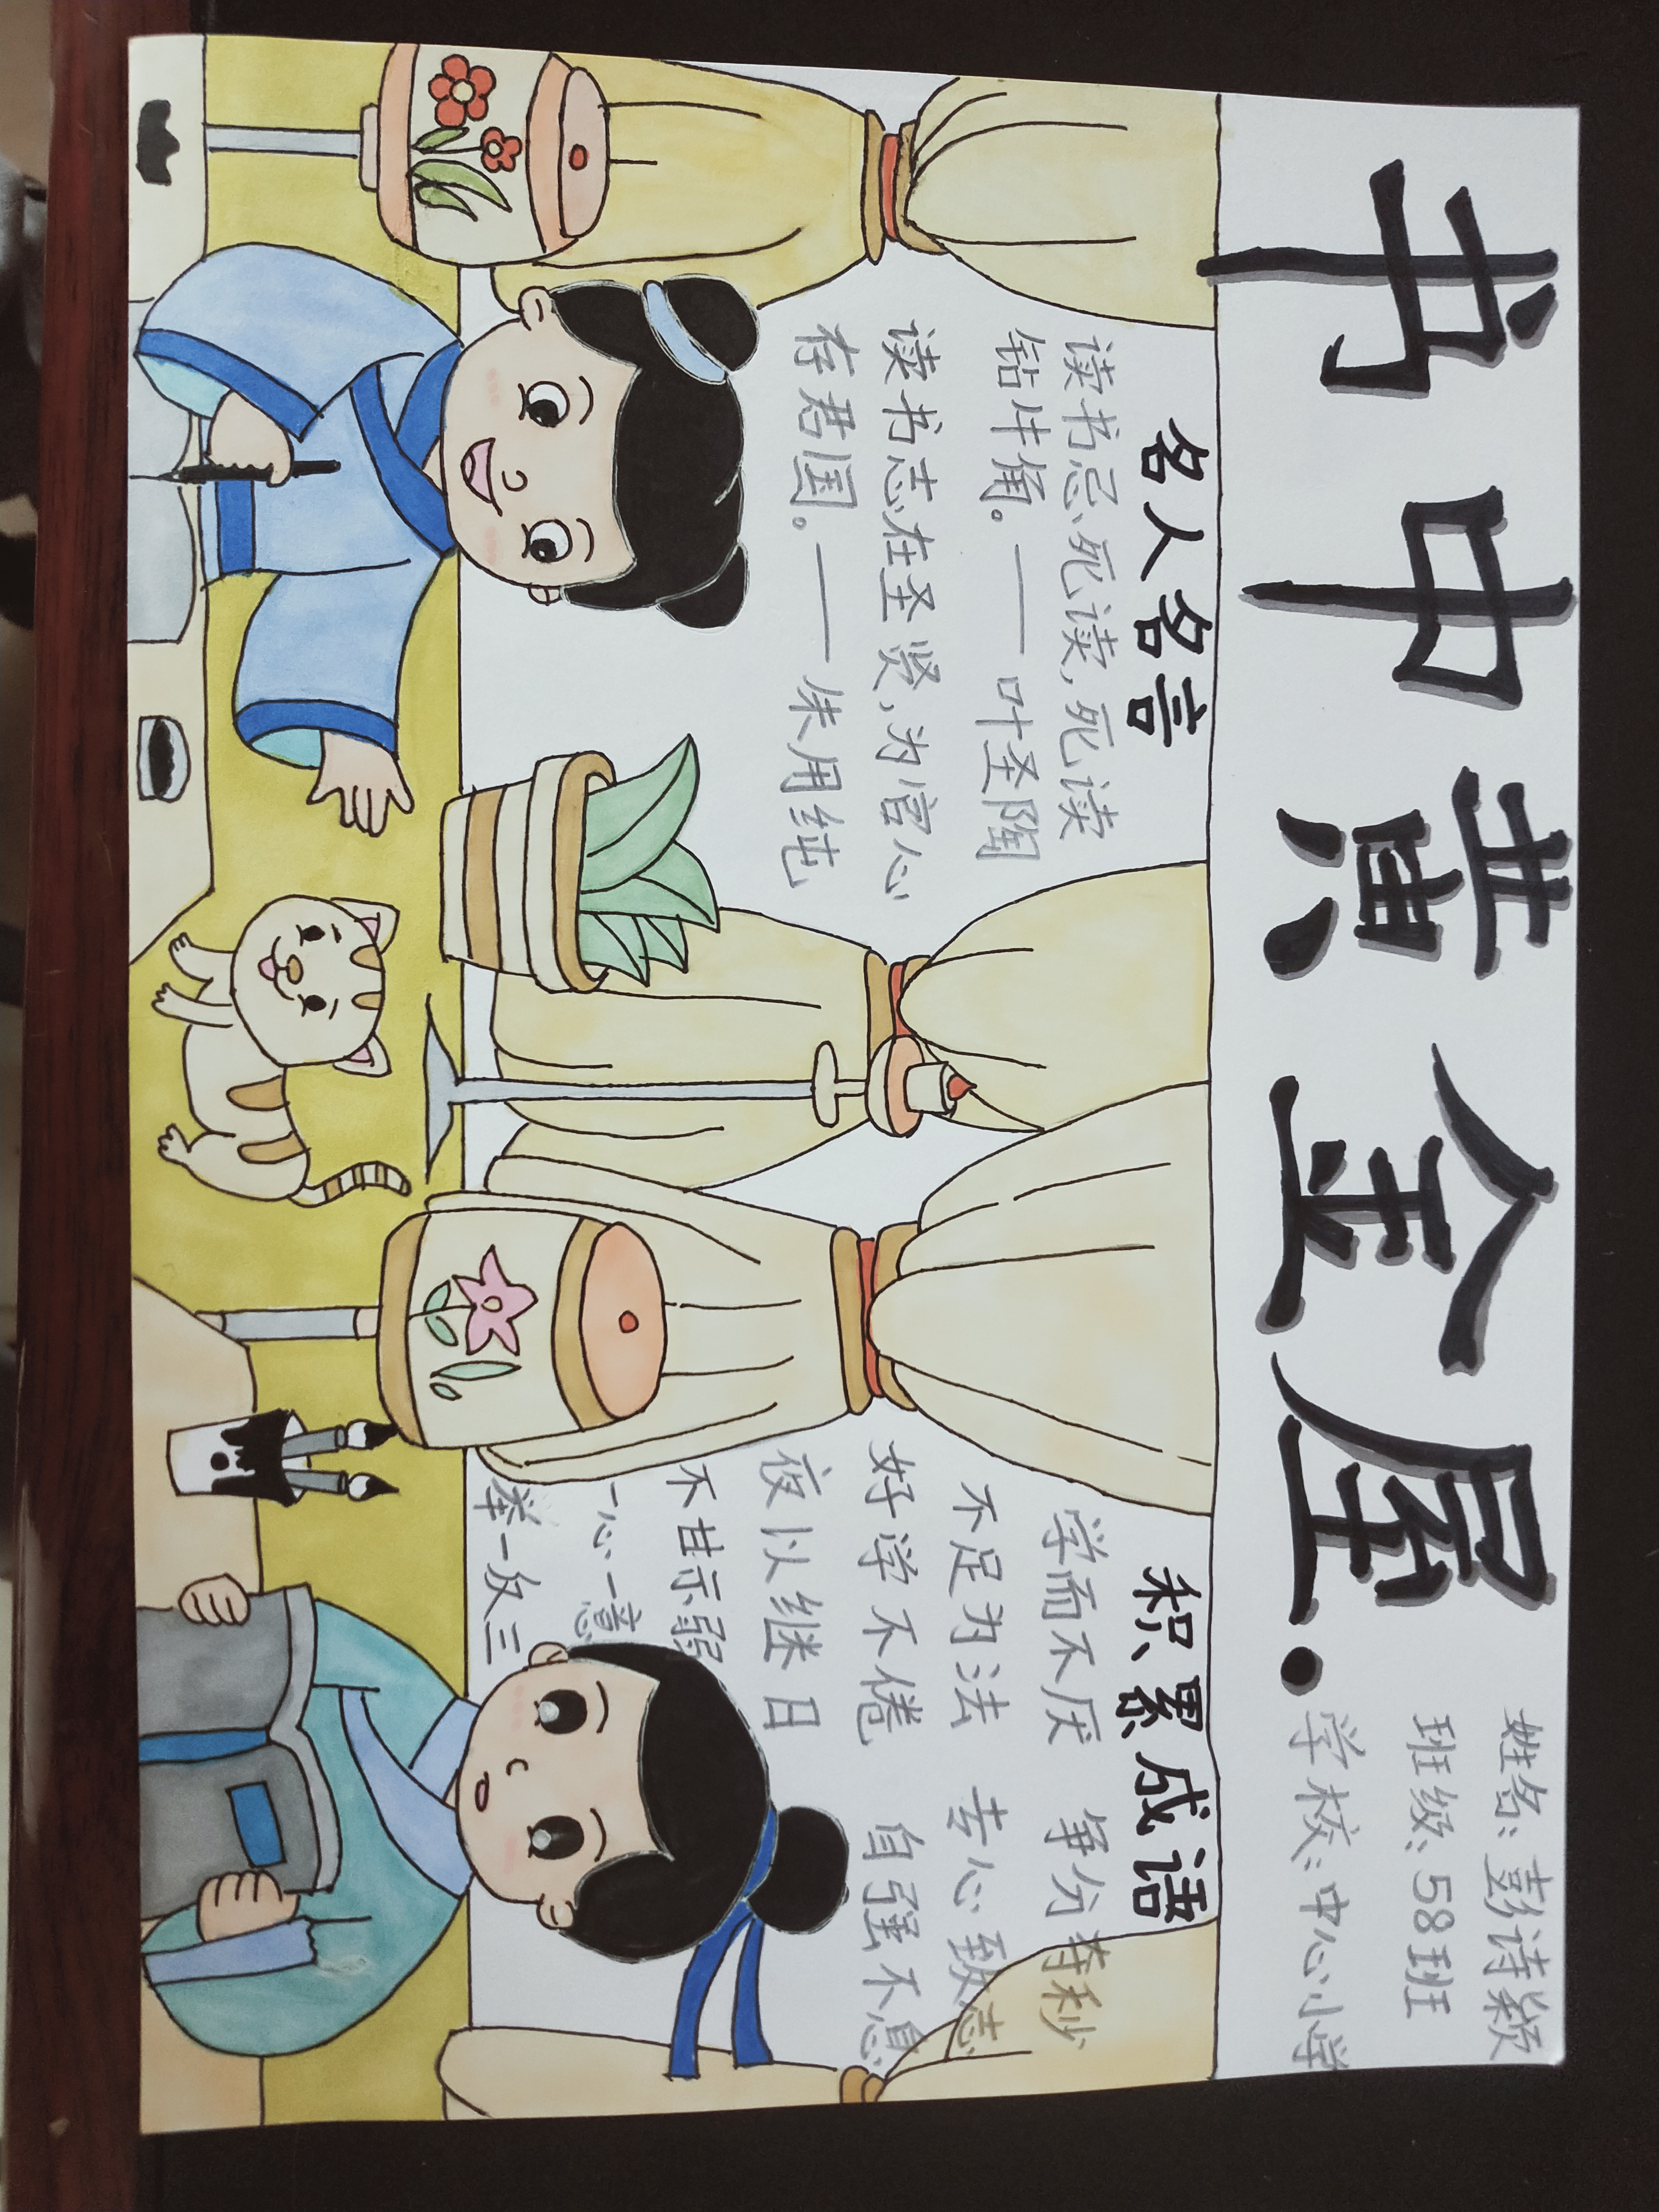 书中黄金屋.
姓名:彭诗颖
班级:58班
学校:中心小学
名人名言
读书忌死读,死读
钻牛角。——叶圣陶
读书志在圣贤,为官心
存君国。——朱用纯
积累成语
学而不厌 争分夺秒
不足为法 专心致志
好学不倦 自强不息
夜以继日
不甘示弱
一心一意
举一反三